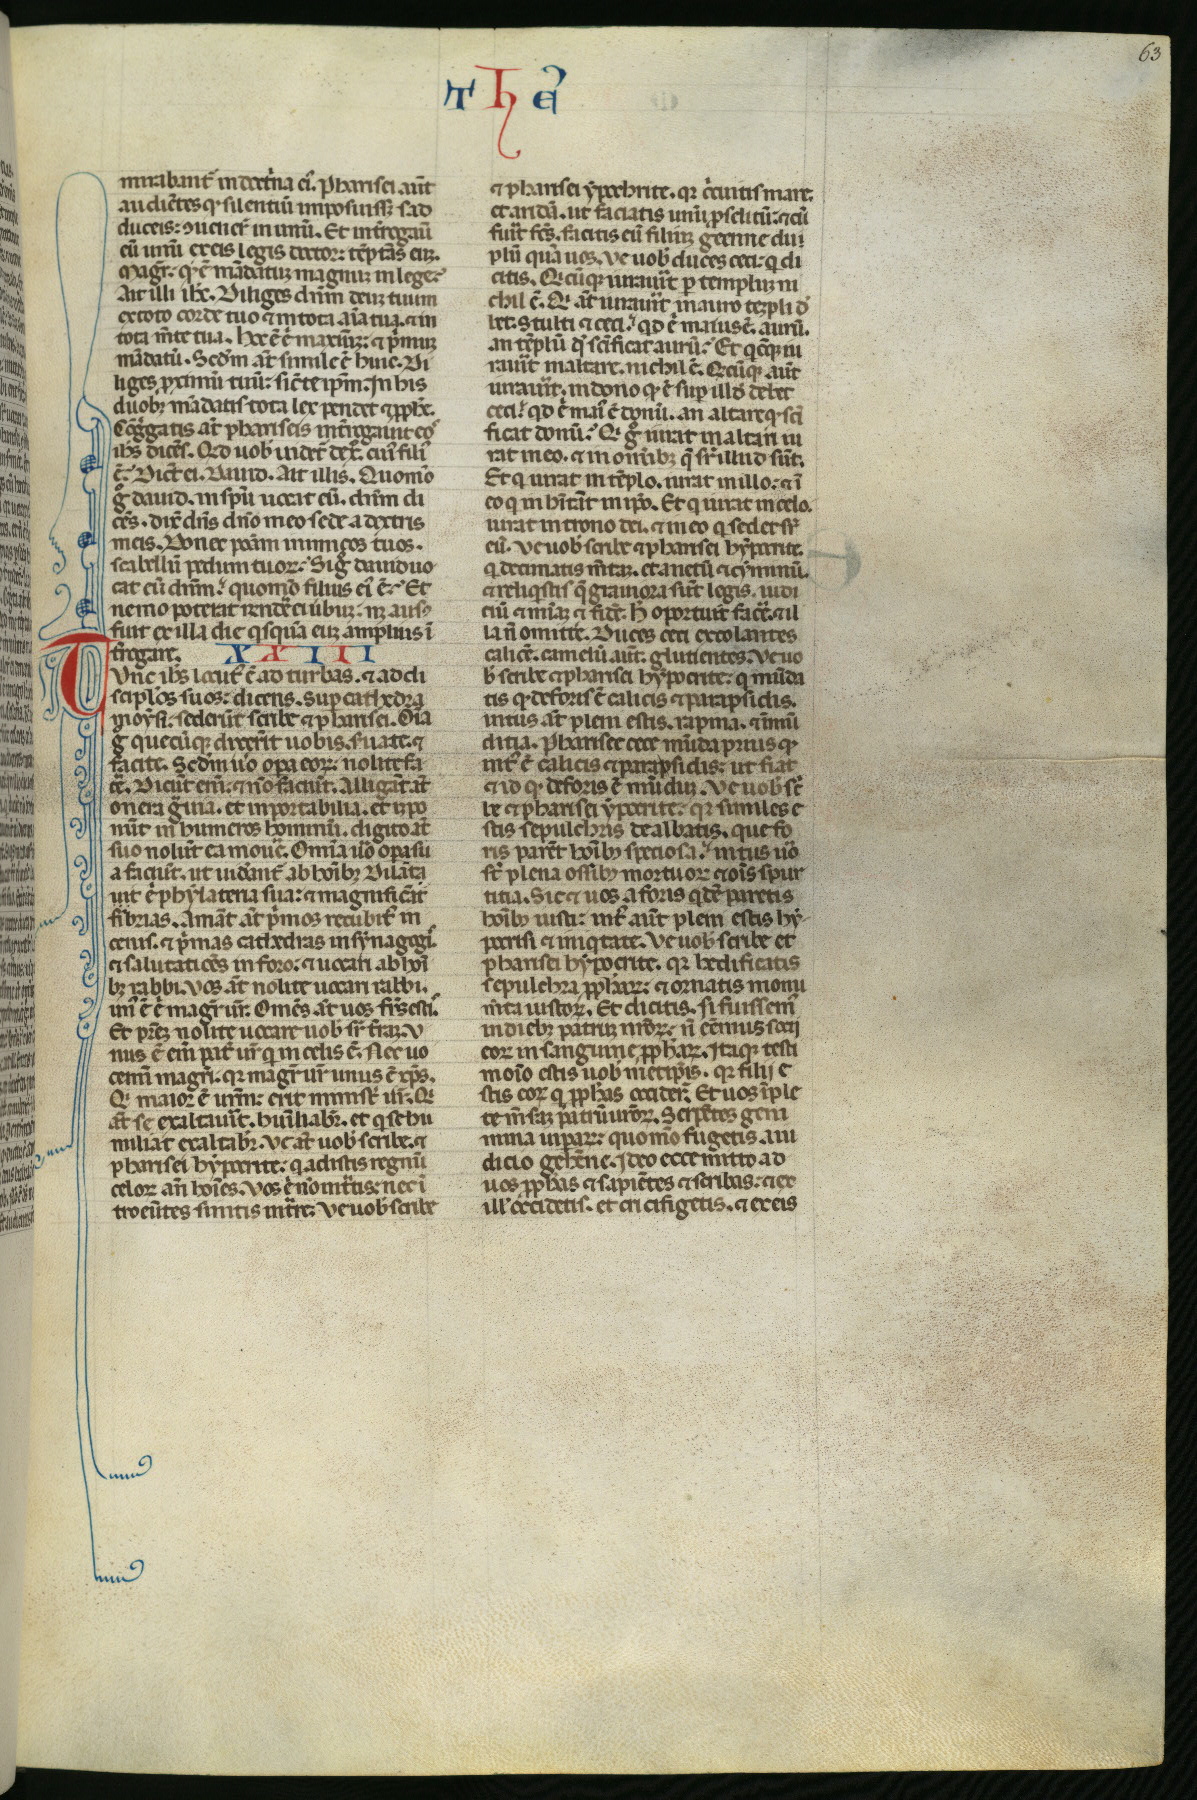 63
T h E᷒
mirabant᷒ in doct᷒na ei᷒. pharisei aut̄
audiētes qꝫ silentiū imposuissꝫ sad
duceis: ꝯuener᷒ in unū. Et int᷒rogauit
eū unus ex eis legis doctor: tēptās eū.
Magr̄. qd̄ ē mādatū magnū in lege?
Ait illi ih̄c. Diliges dn̄m deū tuum
ex toto corde tuo ⁊ in tota aīa tua. ⁊ in
tota m̄te tua. hoc ē ē maximū: ⁊ p᷒mū
mādatū. Scd̄m at̄ simile ē huic. Di
liges ꝓximū tuū: sic te ip̄m. In his
duobꝫ mādatis tota lex pendet ⁊ ꝓph̄e.
Cōg᷒gatis at̄ phariseis int᷒rogauit eos
ih̄s dicēs. Qd̄ uob̄ uidet᷒ de xp̄o. cui᷒ fili᷒
ē? Dic̄t ei. Dauid. Ait illis. Quomō
g᷒ dauid. in spū uocat eū. dn̄m di
cēs. dix̄ dn̄s dn̄o meo sede a dextris
meis. Donec ponam inimicos tuos.
scabellū pedum tuoꝝ? Si g᷒ dauid uo
cat eū dn̄m: quomō filius ei᷒ ē? Et
nemo poterat rn̄dē ei ūbū: nꝫ ausꝰ
fuit ex illa die q᷒squā eū amplius ī
t᷒rogare. XXIII
TUnc ih̄s locut᷒ ē ad turbas. ⁊ ad di
scipl̄os suos: dicens. Sup cathedrā
moysi: sederūt scribe ⁊ pharisei. Oīa
g᷒ quecūqꝫ dixerīt uobis. s̄uate. ⁊
facite. Scd̄m ū᷒o opa eoꝝ: nolite fa
c̄e. Dicūt eni᷒: ⁊ nō faciūt. Alligāt at̄
onera g᷒uia. et inportabilia. et īpo
nūt in humeros hominū. digito at̄
suo nolūt ea mouē. Omīa ū᷒o opa su
a faciūt. ut uidant᷒ ab hoībꝫ Dilāta
ūt ē phylateria sua: ⁊ magnificāt
fībrias. Amāt at̄ p᷒mos recubit᷒ in
cenis. ⁊ p᷒mas cathedras in synagogi᷒.
⁊ salutatiōes in foro: ⁊ uocari ab hoī
bꝫ rabbi. Vos at̄ nolite uocari rabbi.
un᷒ ē ē magr̄ ur̄. Omēs at̄ uos fr̄s esti᷒.
Et pr̄em nolite uocare uob̄ sr̄ t̄ram. V
nus ē em̄ pat᷒ ur̄ q᷒ in celis ē. Nec uo
cemī magr̄i. qꝛ magr̄ ur̄ unus ē xp̄s.
Q᷒ maior ē ur̄m: erit minist᷒ ur̄. Q᷒
at̄ se exaltauīt. humiliabr̄. et q᷒ se hu
miliat exaltabr̄. Ve at̄ uob̄ scribe. ⁊
pharisei hypocrite: q᷒ cl̄itis regnū
celoꝝ an̄ hoīes. Vos ē nō int᷒tis: nec ī
troeūtes sinitis int᷒re. Ve uob̄ scribe
⁊ pharisei ypochrite. qꝛ c᷒cuitis mare.
et aridā. ut faciatis unū ꝓselitū: ⁊ cū
fuīt fc̄s. facitis eū filiū geenne du
plū quā uos. Ve uob̄ duces ceci: q᷒ di
citis. Q᷒cūqꝫ iurauīt p templū ni
chil ē. Q᷒ at̄ iurauīt in auro tēpli d
bet. Stulti ⁊ ceci: qd̄ ē maius ē. aurū.
an tēplū qd̄ sc̄ificat aurū? Et q᷒cūqꝫ iu
rauīt in altare. nichil ē. Q᷒cūqꝫ aut̄
iurauīt. in dono qd̄ ē sup illd̄ debet
Ceci: qd̄ ē mai᷒ ē donū. an altare qd̄ sc̄i
ficat donū? Q᷒ g᷒ iurat in altari iu
rat in eo. ⁊ in omībꝫ q̄ sr̄ illud sūt.
Et q᷒ iurat in tēplo. iurat in illo: ⁊ ī
eo q᷒ inhītāt in ip̄o. Et q᷒ iurat in celo.
iurat in trono dei. ⁊ in eo q᷒ sedet sr̄
eū. Ve uob̄ scribe ⁊ pharisei hypocrite.
q᷒ decimatis m̄tam. et anetū ⁊ cyminū.
⁊ reliq᷒stis q̄ grauiora sūt legis. iudi
ciū ⁊ mīam ⁊ fidē. h̄ oportuit facē. ⁊ il
la n̄ omittē. Duces ceci excolantes
calicē. camelū aūt. glutientes. Ve uo
b̄ scribe ⁊ pharisei hypocrite: q᷒ mūda
tis qd̄ deforis ē calicis ⁊ parapsidis.
intus at̄ pleni estis. rapina. ⁊ īmū
ditia. Pharisee cece mūda prius qd̄
int᷒ ē calicis ⁊ parapsidis: ut fiat
⁊ id qd̄ deforis ē mūdū. Ve uob̄ sc᷒
be ⁊ pharisei ypocrite: qꝛ similes e
stis sepulchris dealbatis. que fo
ris parēt hoībꝫ speciosa: intus ū᷒o
st̄ plena ossibꝫ mortuoꝝ ⁊ oīs spur
titia. Sic ⁊ uos a foris q᷒dē paretis
hoībꝫ iusti: int᷒ aūt pleni estis hy
pocrisi ⁊ iniq᷒tate. Ve uob̄ scribe et
pharisei hypocrite. qꝛ hedificatis
sepulchra ꝓph̄aꝝ: ⁊ ornatis monu
m̄ta iustoꝝ. Et dicitis. si fuissem᷒
in diebꝫ patrū nr̄oꝝ: n̄ eēmus socii
eoꝝ in sanguine ꝓph̄aꝝ. Itaqꝫ testi
moīo estis uob̄ metip̄is. qꝛ filii e
stis eoꝝ q᷒ ꝓph̄as occider̄t. Et uos īple
te m̄surā patrū ur̄oꝝ. Serpētes geni
mina uiperaꝝ: quomō fugietis a iu
dicio gehēne. Ideo ecce mitto ad
uos ꝓph̄as ⁊ sapiētes ⁊ scribas: ⁊ ex
ill᷒ occidetis. et crucifigetis. ⁊ ex eis